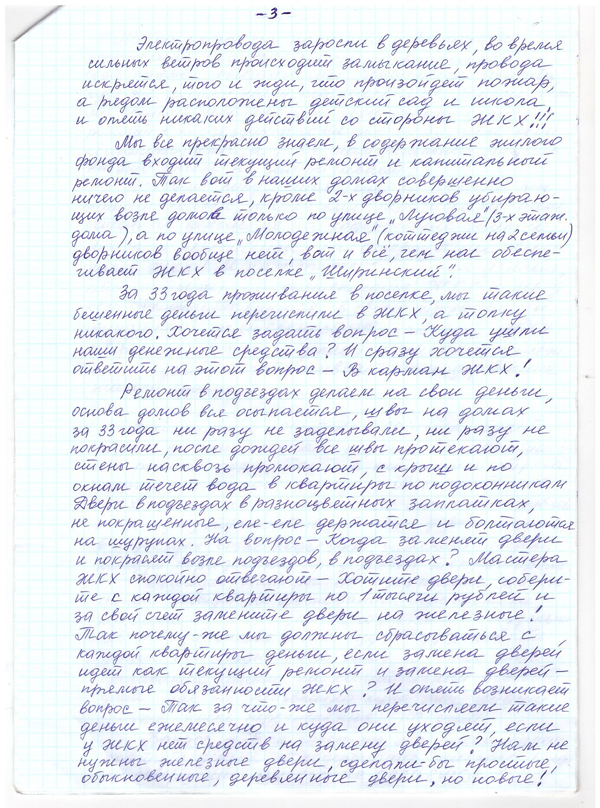 - 3 -
Электропровода заросли в деревьях, во время
сильных ветров происходит замыкание, провода
искрятся, того и жди, что произойдет пожар,
а рядом расположены детский сад и школа,
и опять никаких действий со стороны ЖКХ!!!
Мы все прекрасно знаем, в содержание жилого
фонда входит текущий ремонт и капитальный
ремонт. Так вот в наших домах совершенно
ничего не делается, кроме 2-х дворников убираю-
щих возле домов только по улице „Луговая" (3-х этаж.
дома), а по улице „Молодежная" (коттеджи на 2 семьи)
дворников вообще нет, вот и всё, чем нас обеспе-
чивает ЖКХ в поселке „Ширинский".
За 33 года проживания в поселке, мы такие
бешенные деньги перечислили в ЖКХ, а толку
никакого. Хочется задать вопрос – Куда ушли
наши денежные средства? И сразу хочется
ответить на этот вопрос – В карман ЖКХ!
Ремонт в подъездах делаем на свои деньги,
основа домов вся осыпается, швы на домах
за 33 года ни разу не заделывали, ни разу не
покрасили, после дождей все швы протекают,
стены насквозь промокают, с крыш и по
окнам течет вода в квартиры по подоконникам
Двери в подъездах в разноцветных заплатках,
не покрашенные, еле-еле держатся и болтаются
на шурупах. На вопрос – Когда заменят двери
и покрасят возле подъездов, в подъездах? Мастера
ЖКХ спокойно отвечают – Хотите двери, собери-
те с каждой квартиры по 1 тысячи рублей и
за свой счет замените двери на железные!
Так почему-же мы должны сбрасываться с
каждой квартиры деньги, если замена дверей
идет как текущий ремонт и замена дверей –
прямые обязанности ЖКХ? И опять возникает
вопрос – Так за что-же мы перечисляем такие
деньги ежемесячно и куда они уходят, если
у ЖКХ нет средств на замену дверей? Нам не
нужны железные двери, сделали-бы простые,
обыкновенные, деревянные двери, но новые!